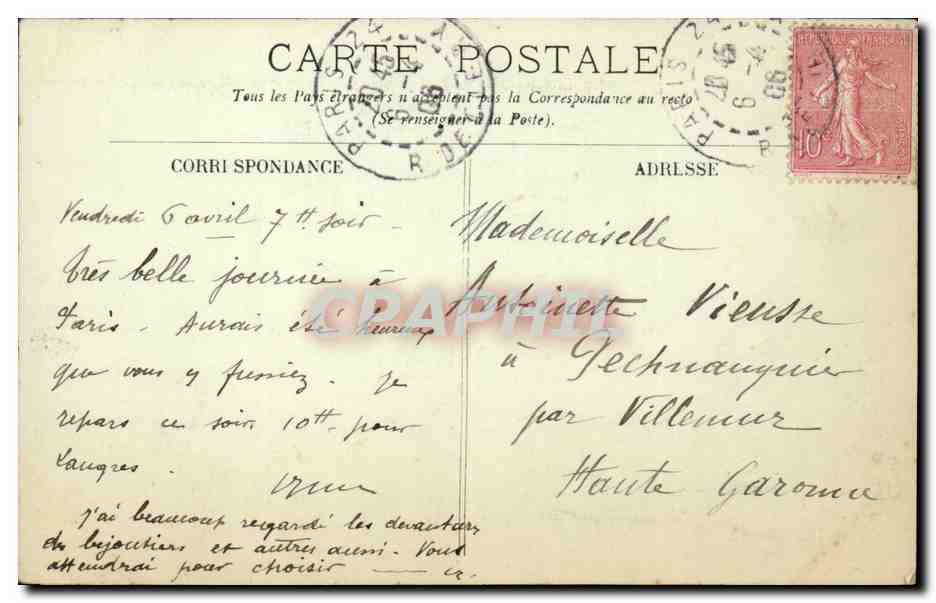 CARTE POSTALE
Tous les Pays étrangers n'acceptent pas la Correspondance au recto
(Se renseigner à la Poste).
CORRESPONDANCE
Vendredi 6 avril 7H soir -
très belle journée à
Paris - Aurais été heureux
que vous y fussiez. Je
repars ce soir 10H pour
Langres.
J'ai beaucoup regardé les devantures
des bijoutiers et autres aussi - Vous
attendrai pour choisir
ADRESSE
Mademoiselle
Antoinette Vieusse
à Pechnauquier
par Villemur
Haute Garonne
PARIS 24
20 45
6 - 4
06
R. DE CLERY
PARIS 24
20 45
6 - 4
06
10
CRAPHIL